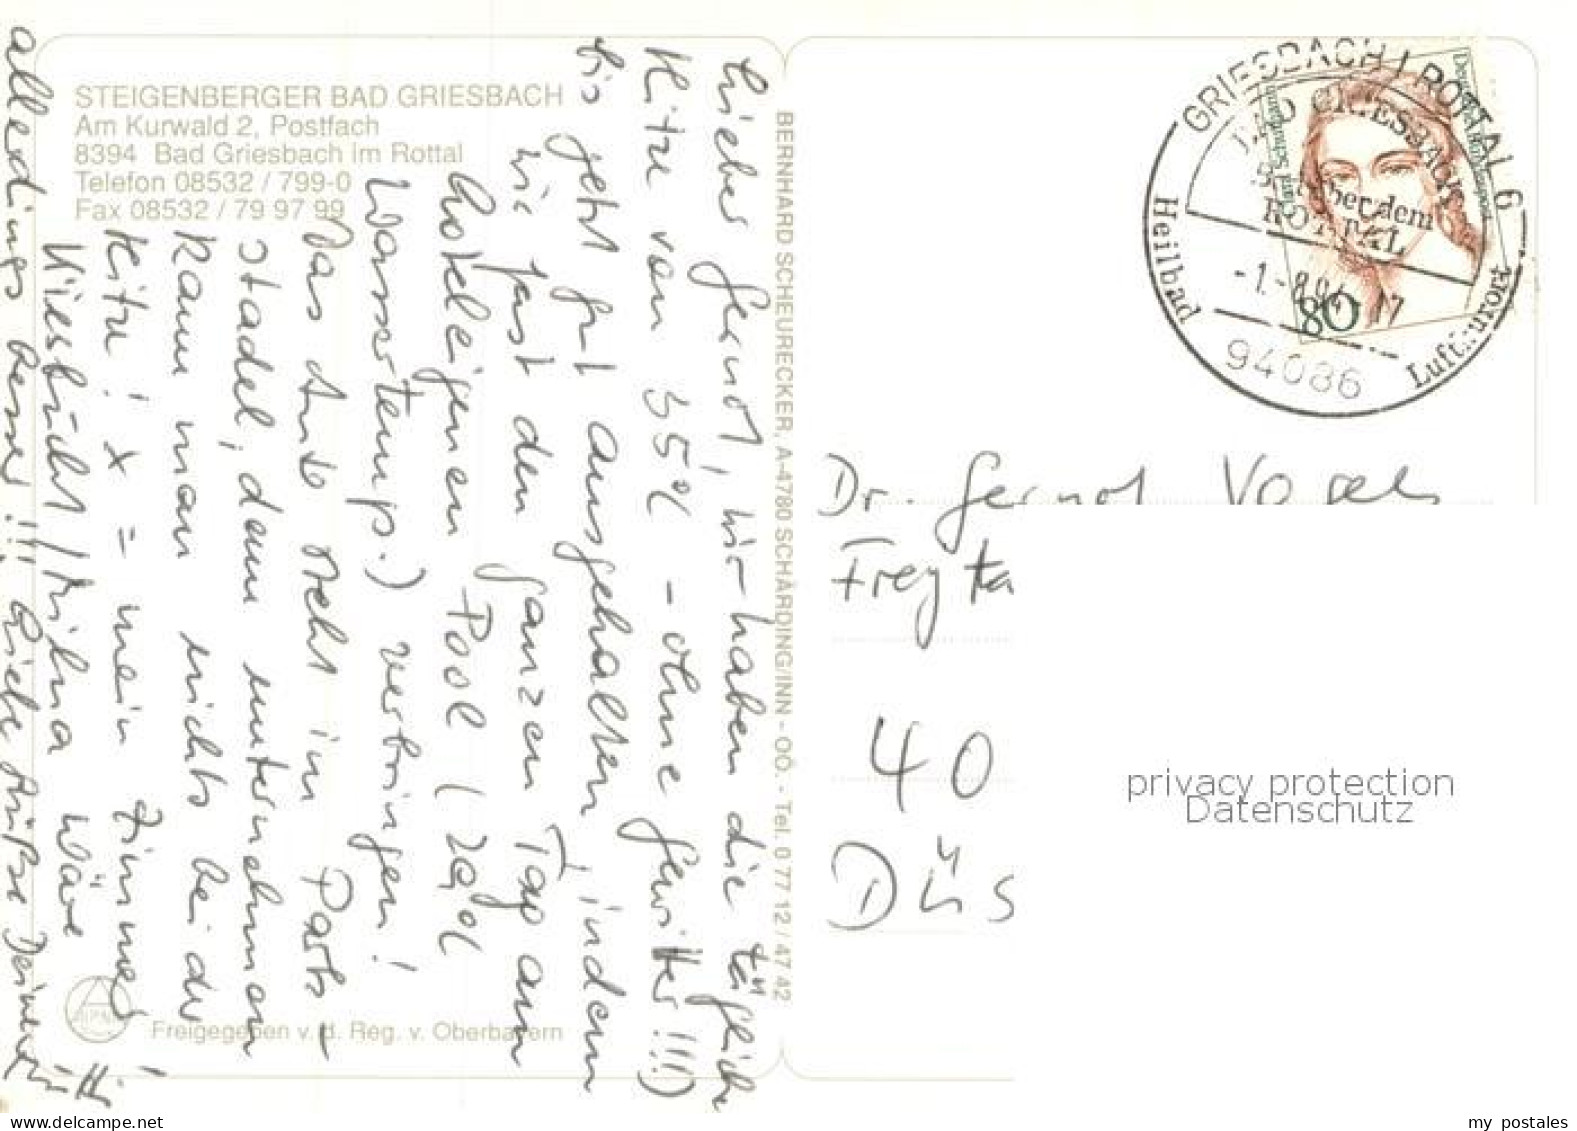 STEIGENBERGER BAD GRIESBACH
Am Kurwald 2, Postfach
8394 Bad Griesbach im Rottal
Telefon 08532 / 799-0
Fax 08532 / 79 97 99
Lieber Gernot, wir haben die tägliche
Hitze von 35°C - ohne Gewitter!!!)
bis jetzt gut ausgehalten, indem
wir fast den ganzen Tag am
hoteleigenen Pool (29°C
Wassertemp.) verbringen!
Das Auto steht im Park-
stadel, denn unternehmen
kann man nichts bei der
Hitze! x = mein Zimmer!
Wiesbüchl / wäre
allerdings besser!!! Liebe Grüße Deine
Freigegeben v. d. Reg. v. Oberbayern
BERNHARD SCHEURECKER, A-4780 SCHÄRDING/INN - OÖ. - Tel. 0 77 12 / 47 42
GRIESBACH I ROTTAL 6
BAD GRIESBACH
über dem
ROTTAL
-1.-8.94-17
94086
Heilbad
Luftkurort
Deutsche Bundespost
Clara Schumann
80
Dr. Gernot
Freyta
40
Düs
privacy protection
Datenschutz
www.delcampe.net
my_postales